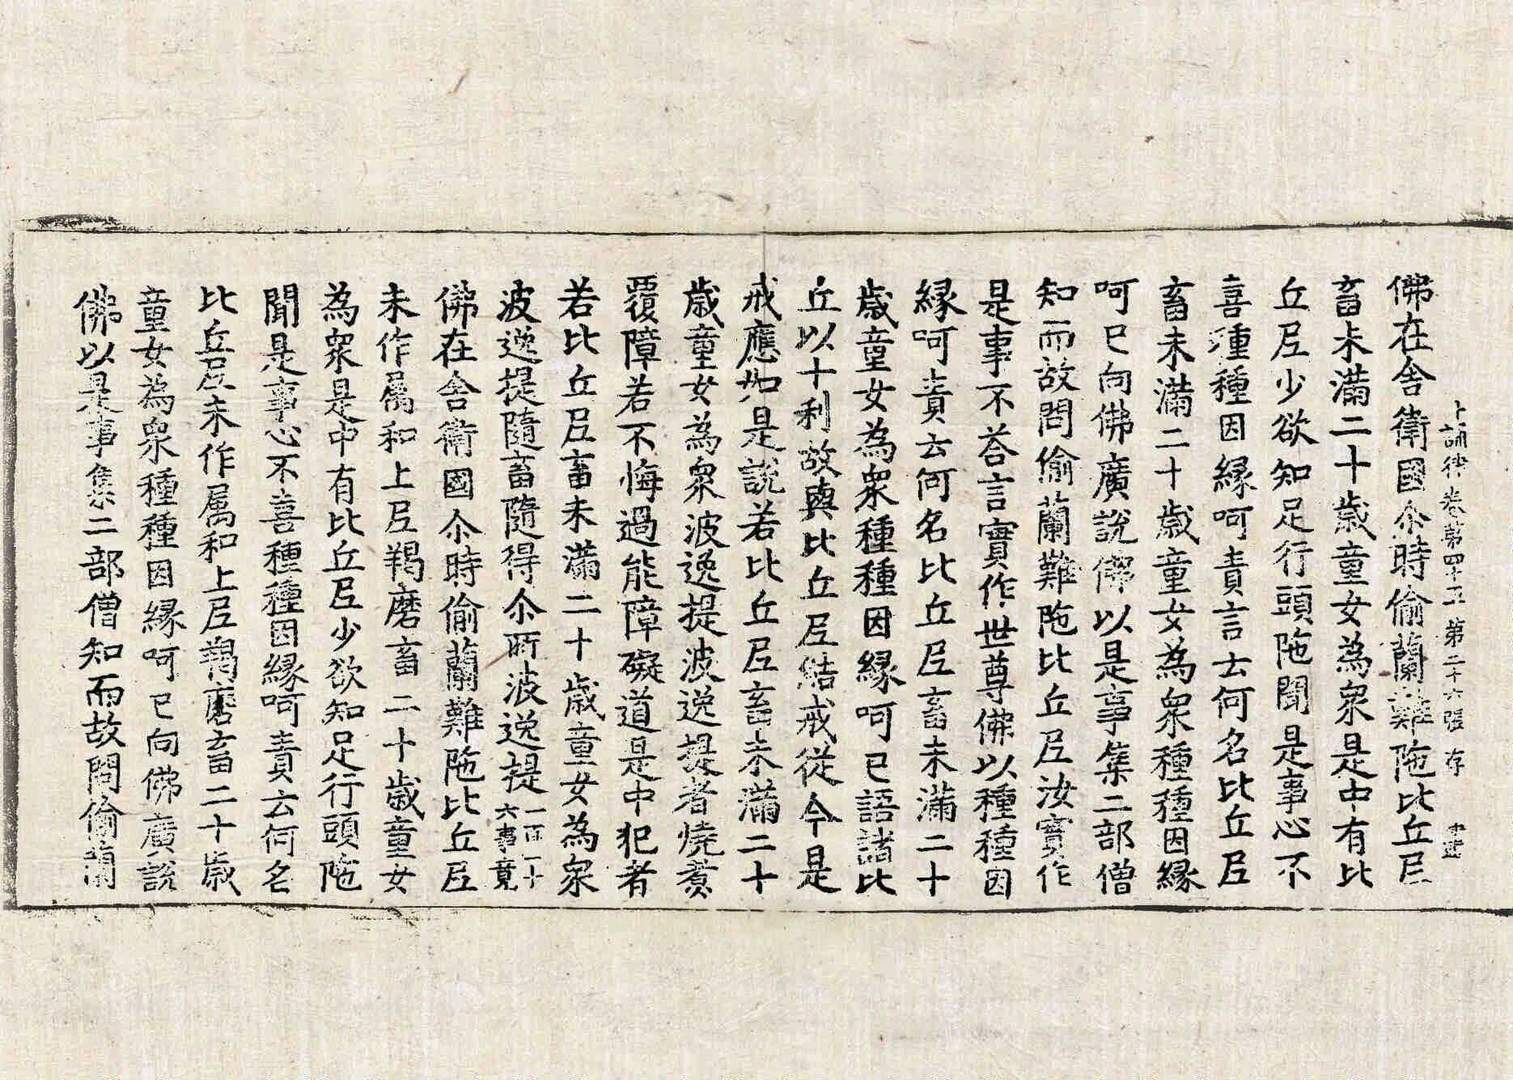 十誦律卷第四十五 第二十六張 存
佛在舍衛國尒時偷蘭難陁比丘尼
畜未滿二十歲童女為衆是中有比
丘尼少欲知足行頭陁聞是事心不
喜種種因緣呵責言云何名比丘尼
畜未滿二十歲童女為衆種種因緣
呵已向佛廣說佛以是事集二部僧
知而故問偷蘭難陁比丘尼汝實作
是事不荅言實作世尊佛以種種因
緣呵責云何名比丘尼畜未滿二十
歲童女為衆種種因緣呵已語諸比
丘以十利故與比丘尼結戒從今是
戒應如是說若比丘尼畜未滿二十
歲童女為衆波逸提波逸提者燒煑
覆障若不悔過能障礙道是中犯者
若比丘尼畜未滿二十歲童女為衆
波逸提隨畜隨得尒所波逸提一百一十六事竟
佛在舍衛國尒時偷蘭難陁比丘尼
未作属和上尼羯磨畜二十歲童女
為衆是中有比丘尼少欲知足行頭陁
聞是事心不喜種種因緣呵責云何名
比丘尼未作属和上尼羯磨畜二十歲
童女為衆種種因緣呵已向佛廣說
佛以是事集二部僧知而故問偷蘭